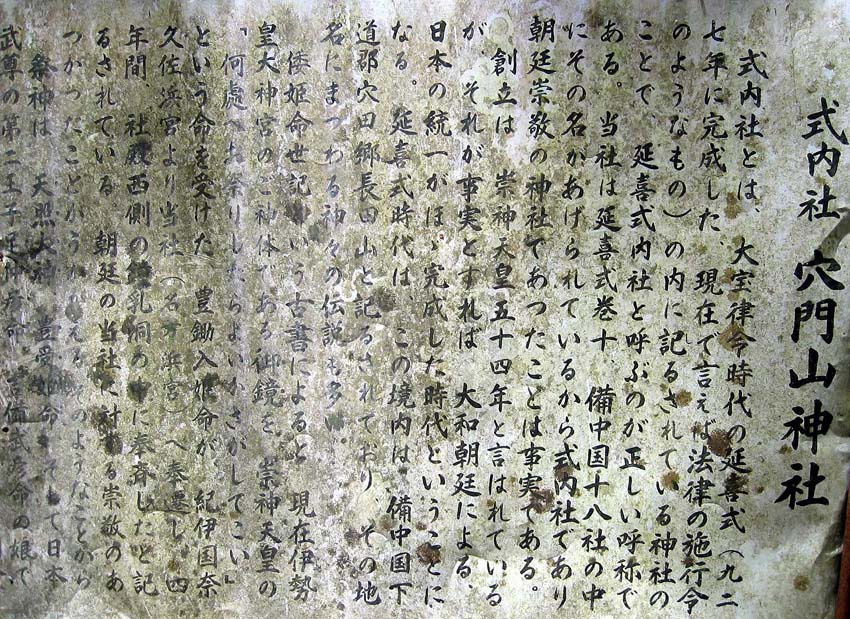 式内社 穴門山神社
式内社とは、大宝律令時代の延喜式（九二
七年に完成した、現在で言えば法律の施行令
のようなもの）の内に記るされている神社の
ことで、延喜式内社と呼ぶのが正しい呼称で
ある。当社は延喜式巻十、備中国十八社の中
にその名があげられているから式内社であり
朝廷崇敬の神社であつたことは事実である。
創立は 崇神天皇五十四年と言はれている
が、それが事実とすれば 大和朝廷による、
日本の統一がほゞ完成した時代ということに
なる。延喜式時代は、この境内は 備中国下
道郡穴田郷長田山と記るされており その地
名にまつわる神々の伝説も多い。
倭姫命世記という古書によると 現在伊勢
皇大神宮のご神体である御鏡を、崇神天皇の
「何處へお祭りしたらよいかさがしてこい」
という命を受けた 豊鋤入姫命が、紀伊国奈
久佐浜宮より当社（名方浜宮）へ奉遷し、四
年間、社殿西側の鍾乳洞の中に奉斉したと記
るされている 朝廷の当社に対する崇敬のあ
つかつたことがうかがえる このようなことから
祭神は 天照大神 そして日本
武尊の第二王子足仲彦命 吉備武彦命の娘で